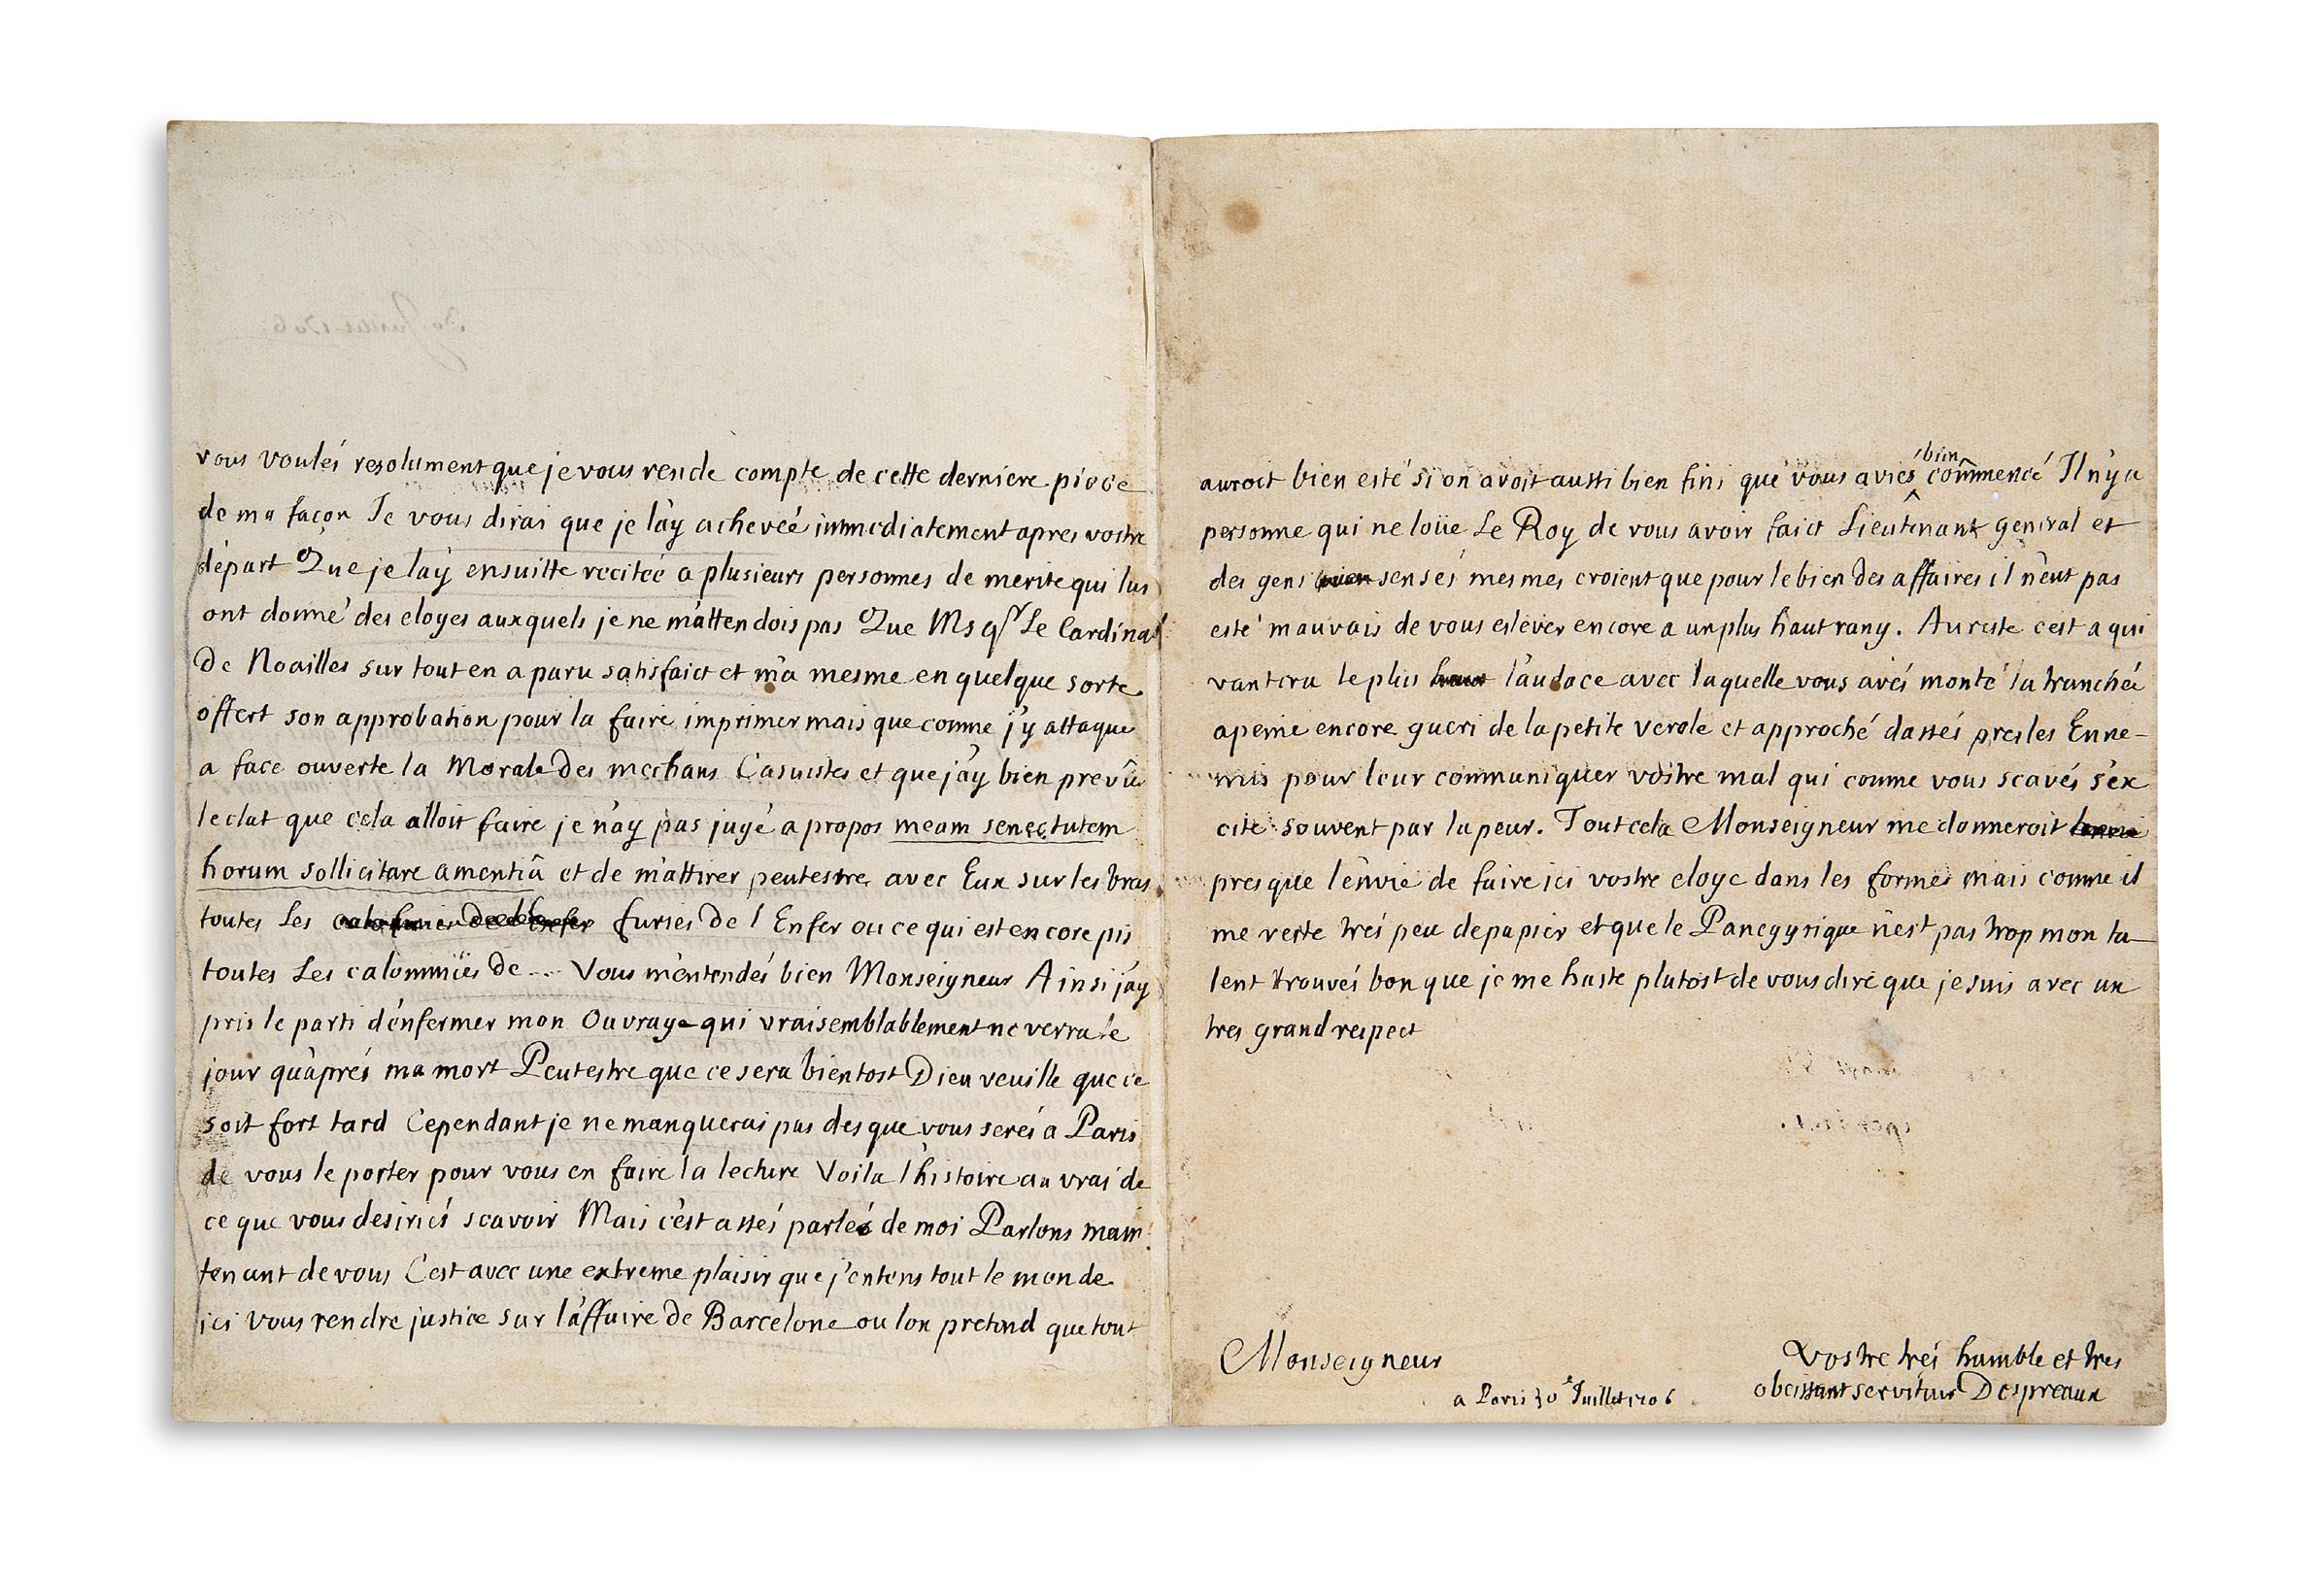 vous voulés resolument que je vous rende compte de cette derniere piece
de ma façon Je vous dirai que je l'ay achevée immediatement apres vostre
départ Que je l'ay ensuitte recitée a plusieurs personnes de merite qui lui
ont donné des eloges auxquels je ne m'attendois pas Que Msgr Le Cardinal
de Noailles sur tout en a paru satisfaict et m'a mesme en quelque sorte
offert son approbation pour la faire imprimer mais que comme j'y attaque
a face ouverte la Morale des mechans Casuistes et que j'ay bien prevû
l'eclat que cela alloit faire je n'ay pas jugé a propos meam senectutem
horum sollicitare amentiâ et de m'attirer peutestre avec Eux sur les bras
toutes Les furies de l'Enfer ou ce qui est encore pis
toutes Les calomnies de ... Vous m'entendés bien Monseigneur Ainsi j'ay
pris le parti d'enfermer mon Ouvrage qui vraisemblablement ne verra le
jour qu'aprés ma mort Peutestre que ce sera bientost Dieu veuille que ce
soit fort tard Cependant je ne manquerai pas des que vous serés a Paris
de vous le porter pour vous en faire la lecture Voila l'histoire au vrai de
ce que vous desiriés scavoir Mais c'est assés parlé de moi Parlons main
tenant de vous C'est avec une extreme plaisir que j'entens tout le monde
ici vous rendre justice sur l'affaire de Barcelone ou lon pretend que tout
auroit bien esté si on avoit aussi bien fini que vous aviés bien commencé Il n'y a
personne qui ne loüe Le Roy de vous avoir faict Lieutenant general et
des gens sensés mesmes croient que pour le bien des affaires il n'eut pas
esté mauvais de vous eslever encore a un plus haut rang. Au reste c'est a qui
vantera le plus l'audace avec laquelle vous avés monté la tranchée
apeine encore gueri de la petite verole et approché d'assés pres les Enne-
mis pour leur communiquer vostre mal qui comme vous scavés s'ex
cite souvent par la peur. Tout cela Monseigneur me donneroit
presque l'envie de faire ici vostre eloge dans les formes mais comme il
me reste trés peu de papier et que le Panegyrique n'est pas trop mon ta-
lent trouvés bon que je me haste plutost de vous dire que je suis avec un
tres grand respect
Monseigneur
Vostre trés humble et tres
obeissant serviteur Despreaux
a Paris 30e Juillet 1706
30 Juillet 1706